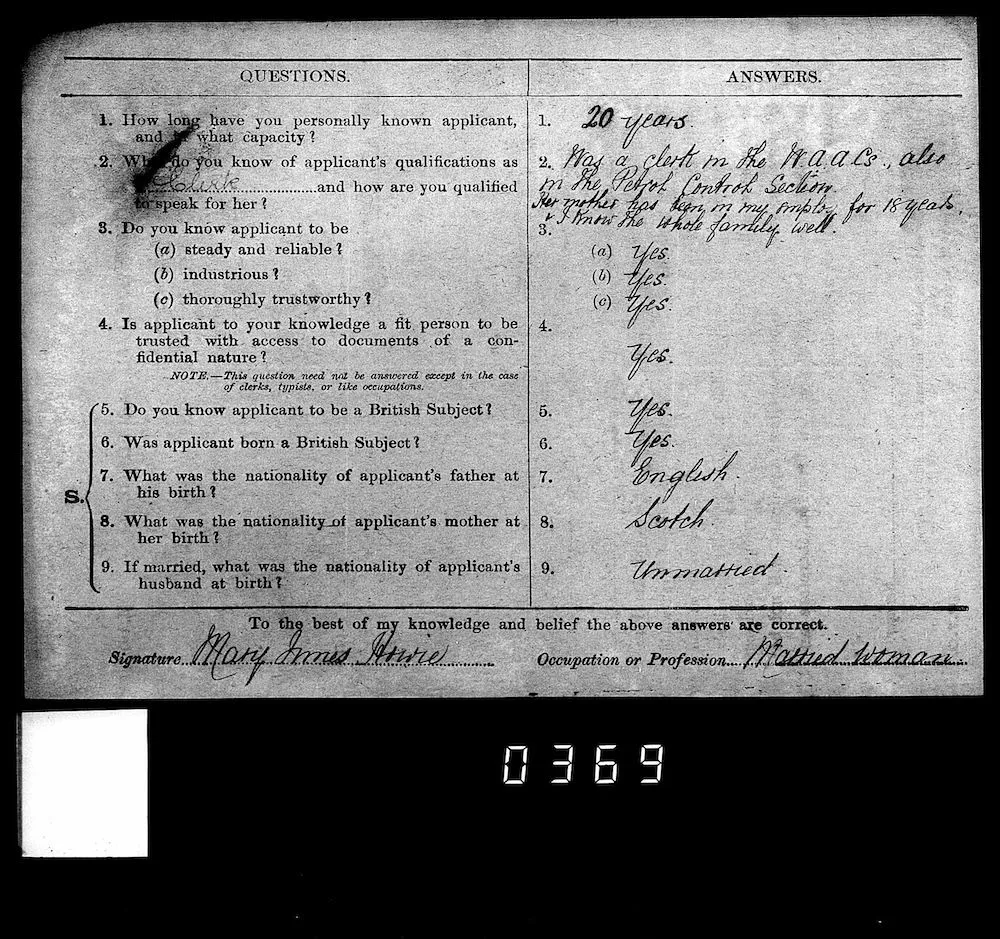 QUESTIONS. ANSWERS.
1. How long have you personally known applicant,
and in what capacity?
1. 20 years.
2. What do you know of applicant's qualifications as
Clerk and how are you qualified
to speak for her?
2. Was a clerk in the W.A.A.C's., also
in the Petrol Control Section.
Her mother has been in my employ for 18 years,
& I know the whole family well.
3. Do you know applicant to be
3.
(a) steady and reliable?
(a) Yes.
(b) industrious?
(b) Yes.
(c) thoroughly trustworthy?
(c) Yes.
4. Is applicant to your knowledge a fit person to be
trusted with access to documents of a con-
fidential nature?
4.
Yes.
NOTE.—This question need not be answered except in the case
of clerks, typists, or like occupations.
S.
5. Do you know applicant to be a British Subject?
5. Yes.
6. Was applicant born a British Subject?
6. Yes.
7. What was the nationality of applicant's father at
his birth?
7. English.
8. What was the nationality of applicant's mother at
her birth?
8. Scotch.
9. If married, what was the nationality of applicant's
husband at birth?
9. Unmarried.
To the best of my knowledge and belief the above answers are correct.
Signature Mary Innes Howie Occupation or Profession Married Woman
0369